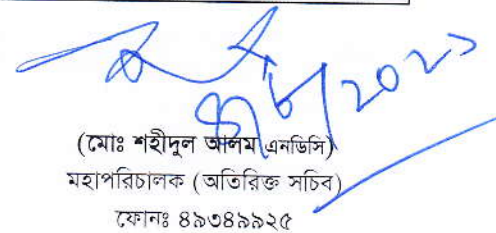 (মোঃ শহীদুল আলম এনডিসি)
মহাপরিচালক (অতিরিক্ত সচিব)
ফোনঃ ৪৯৩৪৯৯২৫